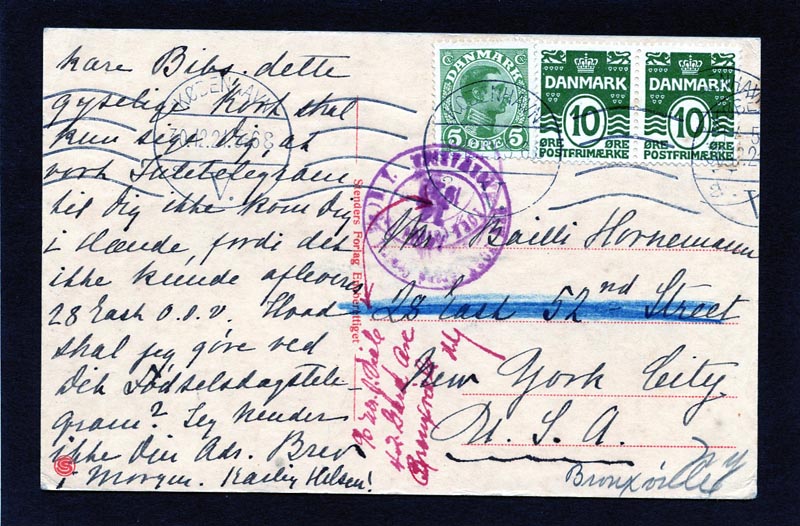 Kære Bibs, dette
gyselige Kort skal
kun sige Dig, at
vort Juletelegram
til Dig ikke kom Dig
i Hænde, fordi det
ikke kunde afleveres
28 East o.s.v. Hvad
skal jeg gøre ved
Dit Fødselsdagstele-
gram? Jeg kender
ikke Din Adr. Brev
i Morgen. Kærlig Hilsen!
Stenders Forlag Eneberettiget
KØBENHAVN
DANMARK
5 ØRE 5
DANMARK
10
ØRE ØRE
POSTFRIMÆRKE
DANMARK
10
ØRE ØRE
POSTFRIMÆRKE
Mr. Bailli Hornemann
28 East 52nd Street
New York City
U. S. A.
Bronxville